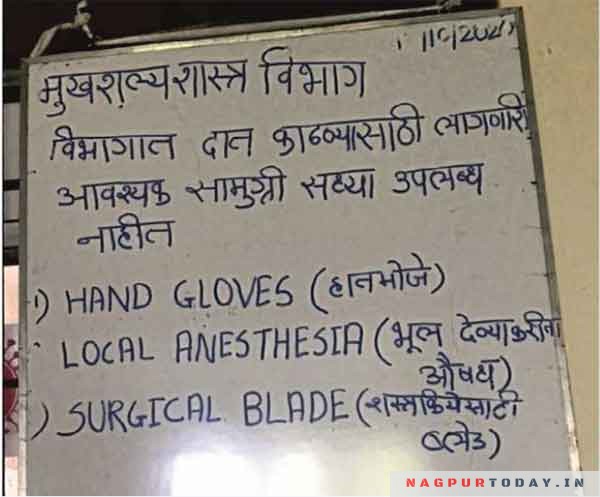 मुखशल्यशास्त्र विभाग
विभागात दात काढण्यासाठी लागणारी
आवश्यक सामुग्री सध्या उपलब्ध
नाहीत
1) HAND GLOVES (हातमोजे)
LOCAL ANESTHESIA (भूल देण्याकरीता
औषध)
) SURGICAL BLADE (शस्त्रक्रियेसाठी
ब्लेड)
NAGPURTODAY.IN